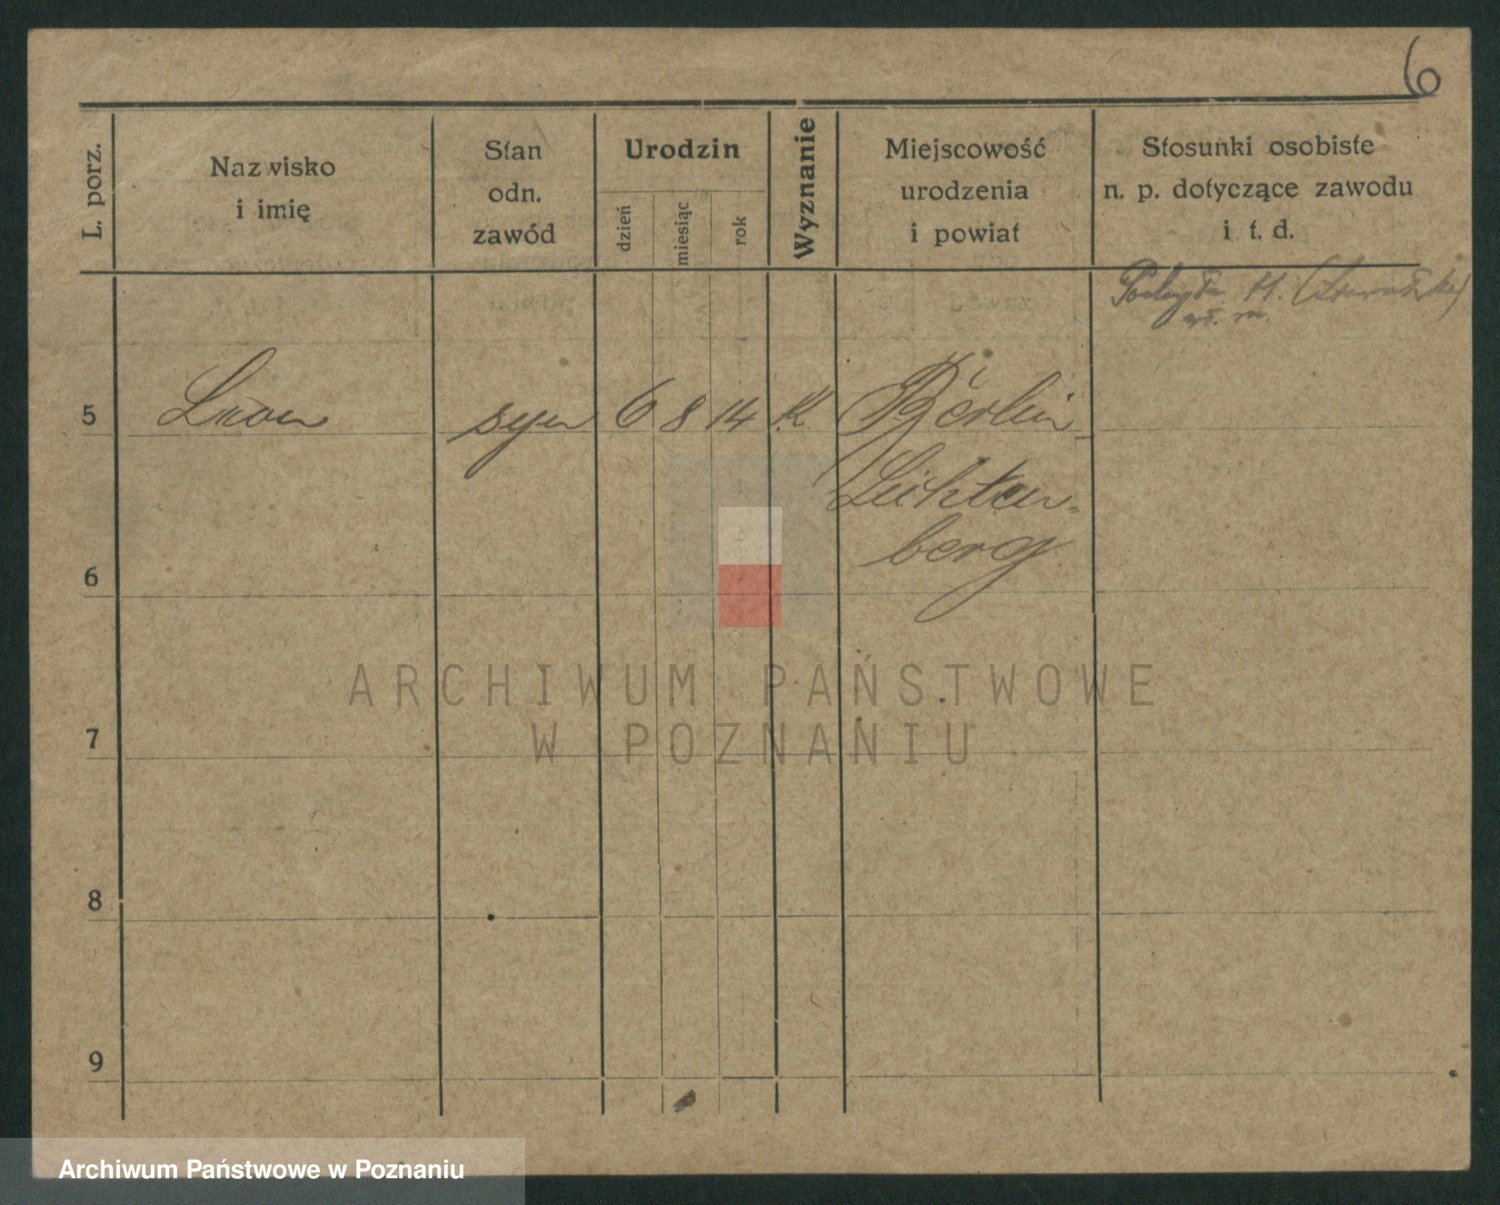 6
L. porz.
Nazwisko
i imię
Stan
odn.
zawód
Urodzin
dzień
miesiąc
rok
Wyznanie
Miejscowość
urodzenia
i powiat
Stosunki osobiste
n. p. dotyczące zawodu
i t. d.
5 Leon syn 6 8 14 K. Berlin-
Lichten-
berg
6
7
8
9
ARCHIWUM PAŃSTWOWE
W POZNANIU
Archiwum Państwowe w Poznaniu